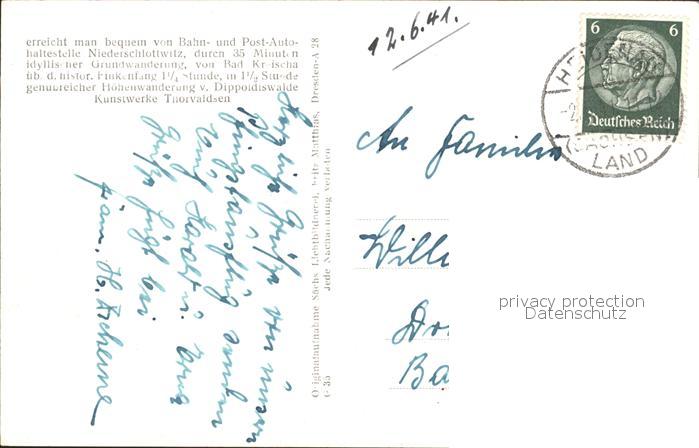 erreicht man bequem von Bahn- und Post-Auto-
haltestelle Niederschlottwitz, durch 35 Minuten
idyllischer Grundwanderung, von Bad Kreischa
üb. d. histor. Finkenfang 1¼ Stunde, in 1½ Stunde
genußreicher Höhenwanderung v. Dippoldiswalde
Kunstwerke Thorvaldsen
12.6.41.
6 6
Deutsches Reich
LAND
Originalaufnahme Sächs. Lichtbildnerei, Fritz Matthias, Dresden-A 28
Jede Nachahmung verboten
G 35
Herzliche Grüße von unserem
Pfingstausflug senden
Grüße fügt bei
Fam. H.
An Familie
Will
Ba
privacy protection
Datenschutz